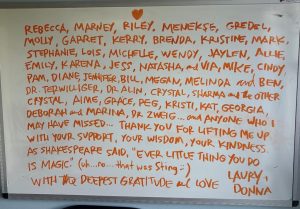 REBECCA, MARNEY, RILEY, MENEKSE, GREDEL,
MOLLY, GARRET, KERRY, BRENDA, KRISTINE, MARK,
STEPHANIE, LOIS, MICHELLE, WENDY, JAYLEN, ALLIE,
EMILY, KARENA, JESS, NATASHA and VIA, MIKE, CINDY,
PAM, DIANE, JENNIFER, BILL, MEGAN, MELINDA and BEN,
DR. TERWILLIGER, DR. ALIN, CRYSTAL, SHARMA and the OTHER
CRYSTAL, AIME, GRACE, PEG, KRISTI, KAT, GEORGIA,
DEBORAH and MARINA, DR. ZWEIG... and ANYONE WHO I
MAY HAVE MISSED... THANK YOU FOR LIFTING ME UP
WITH YOUR SUPPORT, YOUR WISDOM, YOUR KINDNESS.
AS SHAKESPEARE SAID, "EVER LITTLE THING YOU DO
IS MAGIC." (oh...no...that was Sting :)
WITH THE DEEPEST GRATITUDE and LOVE
LAURY
DONNA